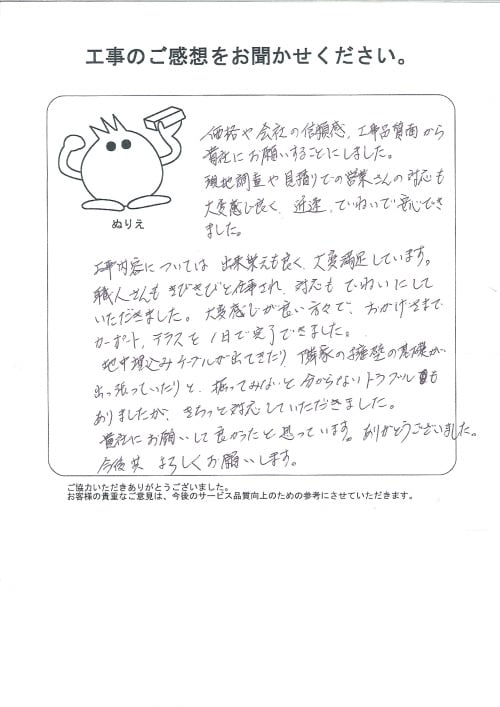 工事のご感想をお聞かせください。
価格や会社の信頼感、工事品質面から
貴社にお願いすることにしました。
現地調査や見積りでの営業さんの対応も
大変感じ良く、迅速、ていねいで安心でき
ました。
ぬりえ
工事内容については 出来栄えも良く、大変満足しています。
職人さんも きびきびと仕事され、対応も ていねいにして
いただきました。大変感じが良い方々で、おかげさまで
カーポート、テラスを 1日で完了できました。
地中埋込みケーブルが出てきたり、隣家の擁壁の基礎が
出っ張っていたりと、掘ってみないと分からないトラブルも
ありましたが、きちっと対応していただきました。
貴社にお願いして良かったと思っています。ありがとうございました。
今後共 よろしくお願いします。
ご協力いただきありがとうございました。
お客様の貴重なご意見は、今後のサービス品質向上のための参考にさせていただきます。